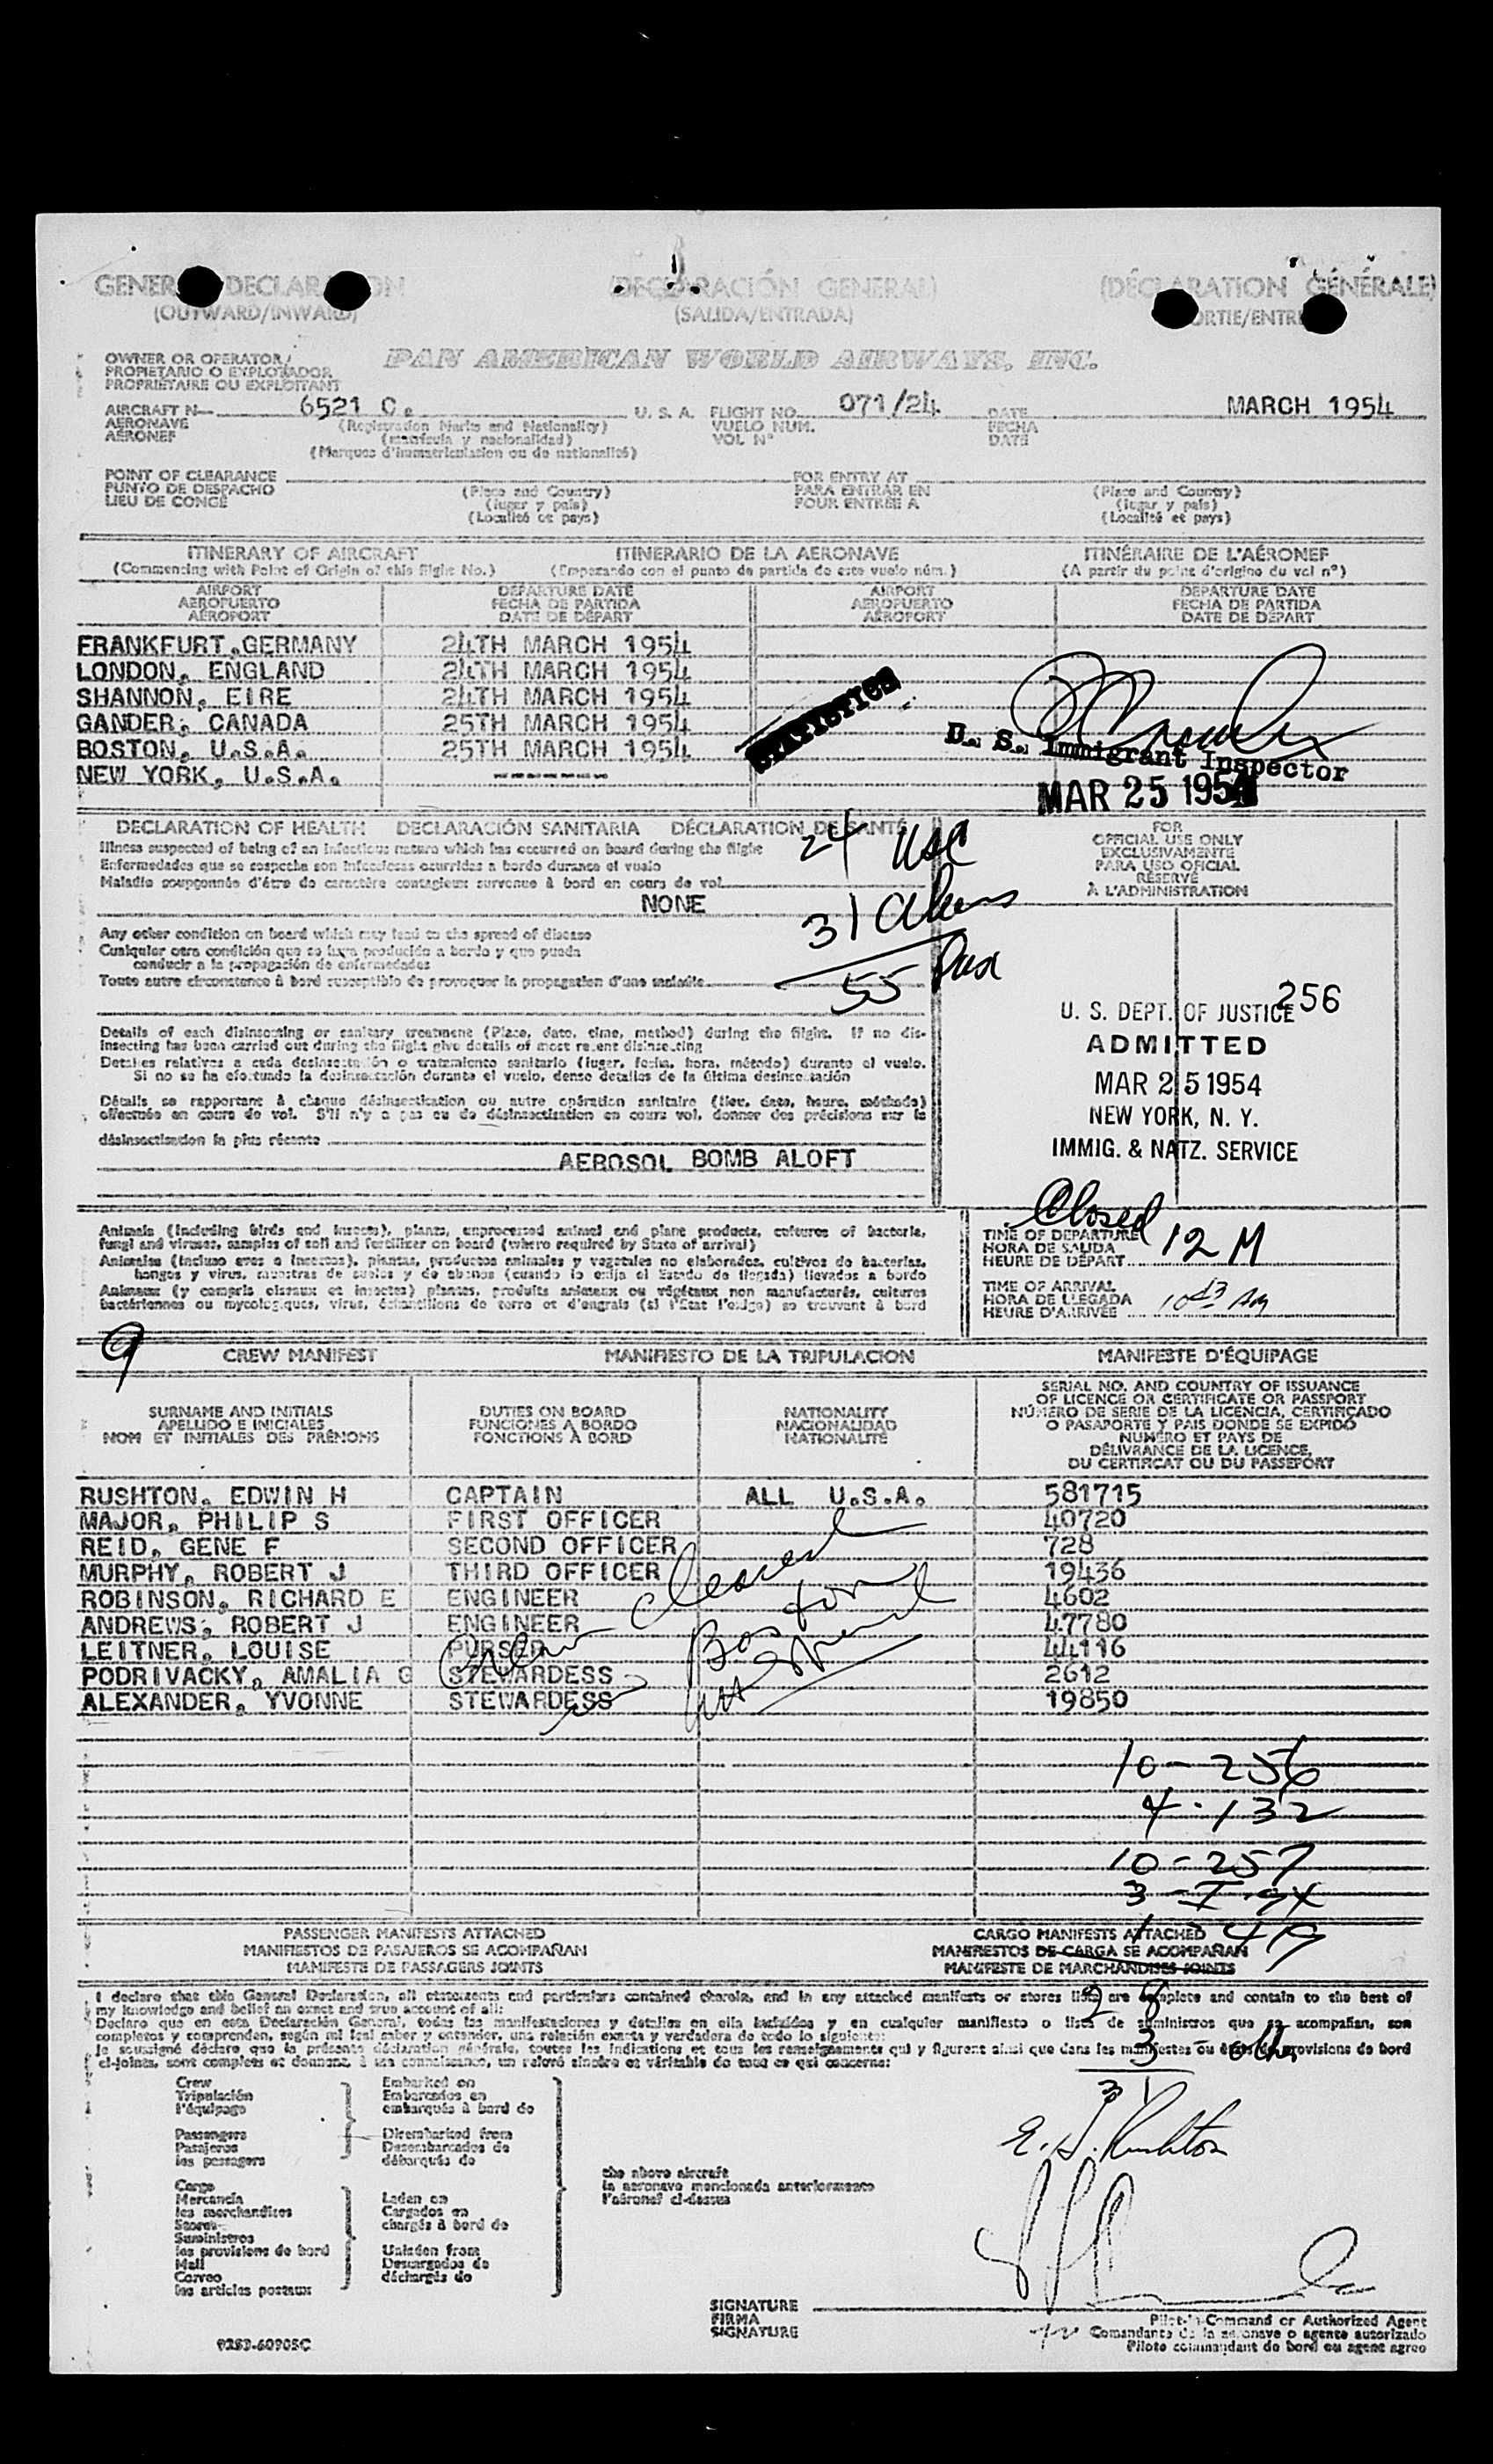 GENERAL DECLARATION (DECLARACIÓN GENERAL) (DÉCLARATION GÉNÉRALE)
(OUTWARD/INWARD) (SALIDA/ENTRADA) (SORTIE/ENTRÉE)
OWNER OR OPERATOR/
PROPIETARIO O EXPLOTADOR
PROPRIÉTAIRE OU EXPLOITANT
PAN AMERICAN WORLD AIRWAYS, INC.
AIRCRAFT N— 6521 C. U. S. A. FLIGHT NO. 071/24 DATE MARCH 1954
AERONAVE (Registration Marks and Nationality) VUELO NUM. FECHA
AÉRONEF (matrícula y nacionalidad) VOL N° DATE
(Marques d'immatriculation ou de nationalité)
POINT OF CLEARANCE FOR ENTRY AT
PUNTO DE DESPACHO (Place and Country) PARA ENTRAR EN (Place and Country)
LIEU DE CONGÉ (lugar y país) POUR ENTRÉE A (lugar y país)
(Localité et pays) (Localité et pays)
ITINERARY OF AIRCRAFT ITINERARIO DE LA AERONAVE ITINÉRAIRE DE L'AÉRONEF
(Commencing with Point of Origin of this flight No.) (Empezando con el punto de partida de este vuelo núm.) (A partir du point d'origine du vol n°)
AIRPORT DEPARTURE DATE AIRPORT DEPARTURE DATE
AEROPUERTO FECHA DE PARTIDA AEROPUERTO FECHA DE PARTIDA
AÉROPORT DATE DE DÉPART AÉROPORT DATE DE DÉPART
FRANKFURT,GERMANY 24TH MARCH 1954
LONDON, ENGLAND 24TH MARCH 1954
SHANNON, EIRE 24TH MARCH 1954
GANDER, CANADA 25TH MARCH 1954
BOSTON, U.S.A. 25TH MARCH 1954
NEW YORK, U.S.A. -- -- -- ---
STATISTICS
U. S. Immigrant Inspector
MAR 25 1954
DECLARATION OF HEALTH DECLARACIÓN SANITARIA DÉCLARATION DE SANTÉ
Illness suspected of being of an infectious nature which has occurred on board during the flight
Enfermedades que se sospecha son infecciosas ocurridas a bordo durante el vuelo
Maladie soupçonnée d'être de caractère contagieux survenue à bord en cours de vol
NONE
24 USC
31 Aliens
55 Pax
FOR
OFFICIAL USE ONLY
EXCLUSIVAMENTE
PARA USO OFICIAL
RÉSERVÉ
À L'ADMINISTRATION
Any other condition on board which may lead to the spread of disease
Cualquier otra condición que se haya producido a bordo y que pueda
conducir a la propagación de enfermedades
Toute autre circonstance à bord susceptible de provoquer la propagation d'une maladie
Details of each disinsecting or sanitary treatment (Place, date, time, method) during the flight. If no dis-
insecting has been carried out during the flight give details of most recent disinsecting
Detalles relativos a cada desinsectación o tratamiento sanitario (lugar, fecha, hora, método) durante el vuelo.
Si no se ha efectuado la desinsectación durante el vuelo, dense detalles de la última desinsectación
Détails se rapportant à chaque désinsectisation ou autre opération sanitaire (lieu, date, heure, méthode)
effectuée en cours de vol. S'il n'y a pas eu de désinsectisation en cours vol, donner des précisions sur la
désinsectisation la plus récente
AEROSOL BOMB ALOFT
U. S. DEPT. OF JUSTICE 256
ADMITTED
MAR 25 1954
NEW YORK, N. Y.
IMMIG. & NATZ. SERVICE
Animals (including birds and insects), plants, unprocessed animal and plant products, cultures of bacteria,
fungi and viruses, samples of soil and fertilizer on board (where required by State of arrival)
Animales (incluso aves e insectos), plantas, productos animales y vegetales no elaborados, cultivos de bacterias,
hongos y virus, muestras de suelos y de abonos (cuando lo exija el Estado de llegada) llevados a bordo
Animaux (y compris oiseaux et insectes) plantes, produits animaux ou végétaux non manufacturés, cultures
bactériennes ou mycologiques, virus, échantillons de terre et d'engrais (si l'État l'exige) se trouvant à bord
Closed
TIME OF DEPARTURE
HORA DE SALIDA
HEURE DE DÉPART 12 M
TIME OF ARRIVAL
HORA DE LLEGADA
HEURE D'ARRIVÉE 10 43 AM
9
CREW MANIFEST MANIFIESTO DE LA TRIPULACION MANIFESTE D'ÉQUIPAGE
SURNAME AND INITIALS
APELLIDO E INICIALES
NOM ET INITIALES DES PRÉNOMS
DUTIES ON BOARD
FUNCIONES A BORDO
FONCTIONS À BORD
NATIONALITY
NACIONALIDAD
NATIONALITÉ
SERIAL NO. AND COUNTRY OF ISSUANCE
OF LICENCE OR CERTIFICATE OR PASSPORT
NÚMERO DE SERIE DE LA LICENCIA, CERTIFICADO
O PASAPORTE Y PAIS DONDE SE EXPIDÓ
NUMÉRO ET PAYS DE
DÉLIVRANCE DE LA LICENCE,
DU CERTIFICAT OU DU PASSEPORT
RUSHTON, EDWIN H CAPTAIN ALL U.S.A. 581715
MAJOR, PHILIP S FIRST OFFICER 40720
REID, GENE F SECOND OFFICER 728
MURPHY, ROBERT J THIRD OFFICER 19436
ROBINSON, RICHARD E ENGINEER 4602
ANDREWS, ROBERT J ENGINEER 47780
LEITNER, LOUISE PURSER 44116
PODRIVACKY, AMALIA G STEWARDESS 2612
ALEXANDER, YVONNE STEWARDESS 19850
Cleared
Boston
10 - 256
4 - 132
10 - 257
3 -
1 - 419
PASSENGER MANIFESTS ATTACHED CARGO MANIFESTS ATTACHED
MANIFIESTOS DE PASAJEROS SE ACOMPAÑAN MANIFIESTOS DE CARGA SE ACOMPAÑAN
MANIFESTE DE PASSAGERS JOINTS MANIFESTE DE MARCHANDISES JOINTS
28
3 - oth
31
I declare that this General Declaration, all statements and particulars contained therein, and in any attached manifests or stores lists are complete and contain to the best of
my knowledge and belief an exact and true account of all:
Declaro que en esta Declaración General, todas las manifestaciones y detalles en ella incluídos y en cualquier manifiesto o lista de suministros que se acompañan, son
completos y comprenden, según mi leal saber y entender, una relación exacta y verdadera de todo lo siguiente:
Je soussigné déclare que la présente déclaration générale, toutes les indications et tous les renseignements qui y figurent ainsi que dans les manifestes ou états de provisions de bord
ci-joints, sont complets et donnent, à ma connaissance, un relevé sincère et véritable de tout ce qui concerne:
Crew Embarked on
Tripulación Embarcados en
l'équipage embarqués à bord de
Passengers Disembarked from
Pasajeros Desembarcados de
les passagers débarqués de
the above aircraft
la aeronave mencionada anteriormente
l'aéronef ci-dessus
Cargo
Mercancía Laden on
les marchandises Cargados en
Stores chargés à bord de
Suministros
les provisions de bord Unladen from
Mail Descargados de
Correo déchargés de
les articles postaux
E. H. Rushton
SIGNATURE
FIRMA
SIGNATURE
Pilot-in-Command or Authorized Agent
Comandante de la aeronave o agente autorizado
Pilote commandant de bord ou agent agréé
9283-60905C